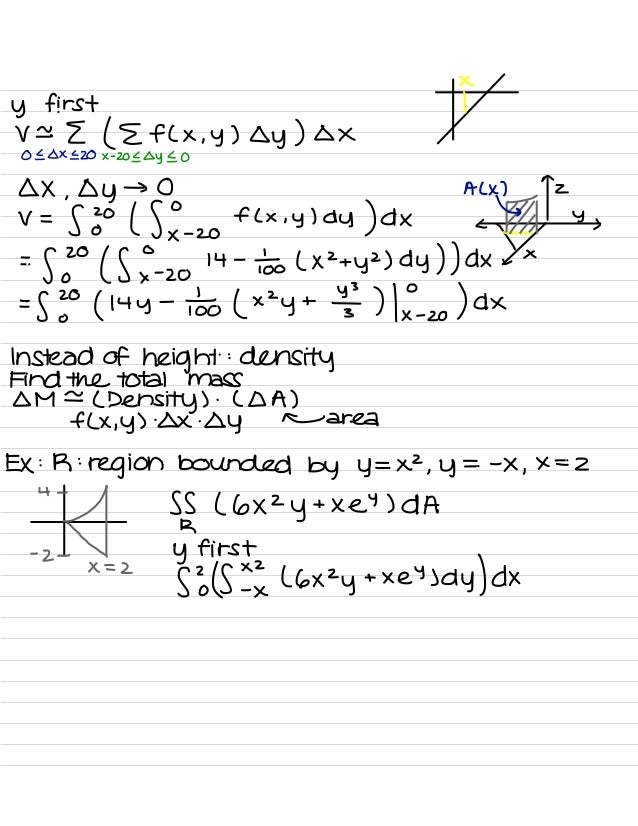 y first
x
V ≃ Σ (Σ f(x,y) Δy) Δx
0≤Δx≤20 x-20≤Δy≤0
Δx, Δy → 0
A(x) z y x
V = ∫₀²⁰ (∫_{x-20}^{0} f(x,y) dy) dx
= ∫₀²⁰ (∫_{x-20}^{0} 14 - 1/100 (x²+y²) dy)) dx
= ∫₀²⁰ (14y - 1/100 (x²y + y³/3) |_{x-20}^{0}) dx
Instead of height: density
Find the total mass
ΔM ≃ (Density) · (ΔA)
f(x,y) · Δx · Δy area
Ex: R: region bounded by y=x², y = -x, x=2
4
-2
x=2
∫∫_R (6x²y + xe^y) dA
y first
∫₀² (∫_{-x}^{x²} (6x²y + xe^y) dy) dx